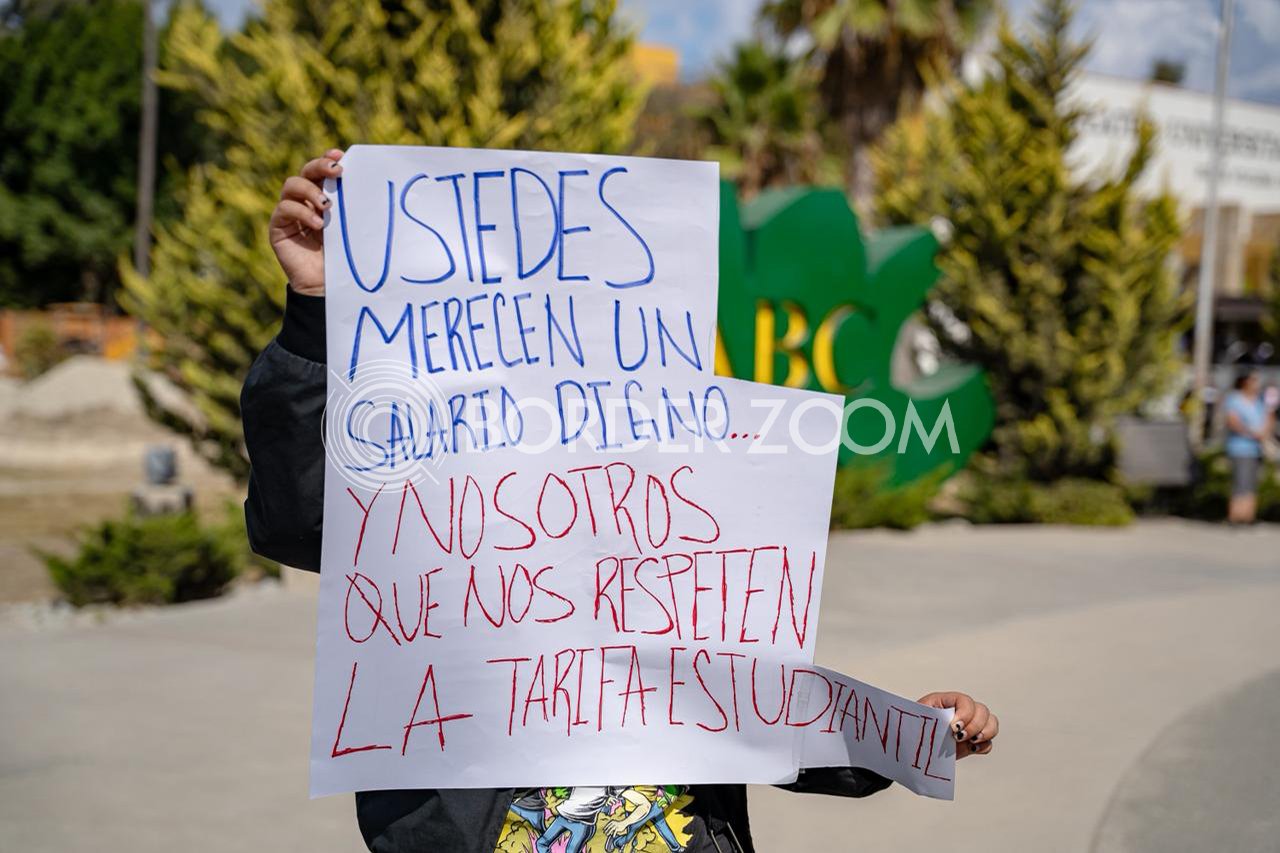 USTEDES
MERECEN UN
SALARIO DIGNO...
Y NOSOTROS
QUE NOS RESPETEN
LA TARIFA ESTUDIANTIL
BORDER ZOOM
ABC